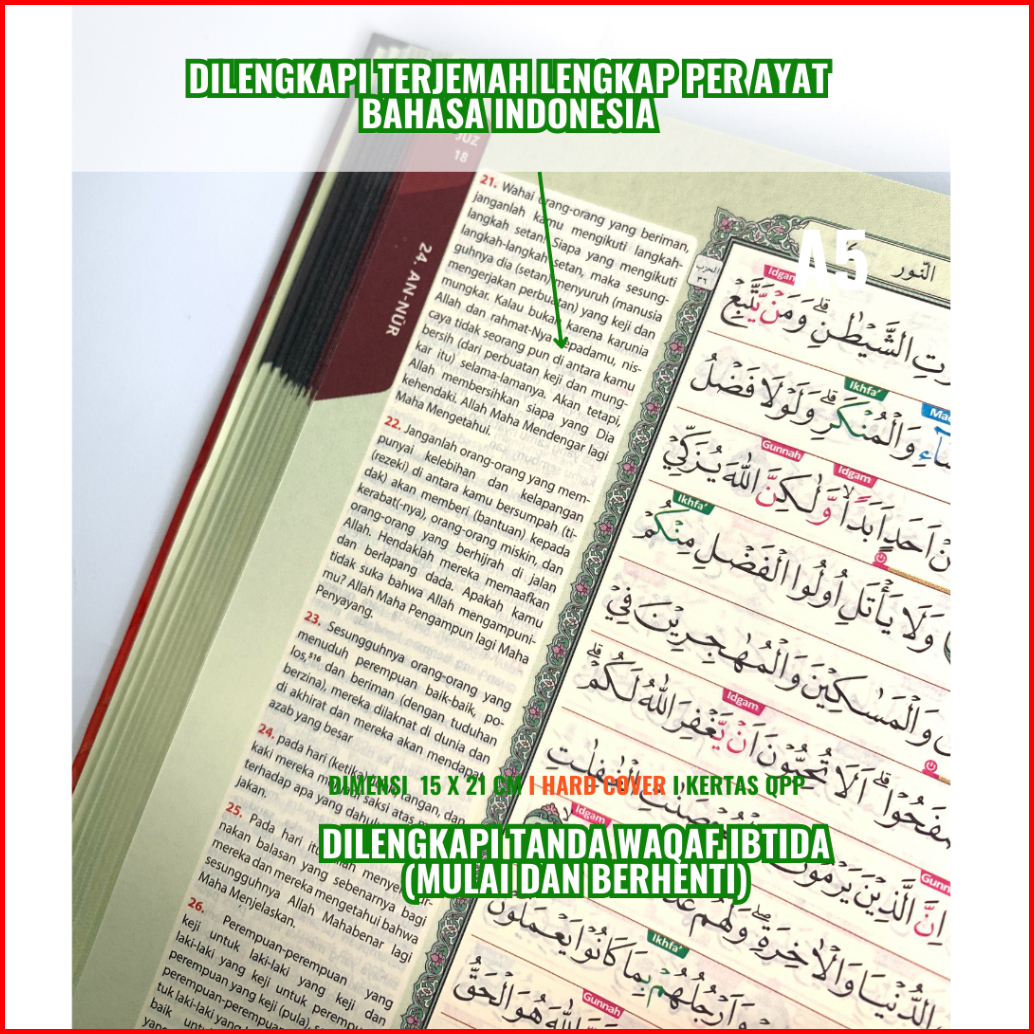 DILENGKAPI TERJEMAH LENGKAP PER AYAT
BAHASA INDONESIA
JUZ
18
24. AN-NŪR
21. Wahai orang-orang yang beriman,
janganlah kamu mengikuti langkah-
langkah setan! Siapa yang mengikuti
langkah-langkah setan, maka sesung-
guhnya dia (setan) menyuruh (manusia
mengerjakan perbuatan) yang keji dan
mungkar. Kalau bukan karena karunia
Allah dan rahmat-Nya kepadamu, nis-
caya tidak seorang pun di antara kamu
bersih (dari perbuatan keji dan mung-
kar itu) selama-lamanya. Akan tetapi,
Allah membersihkan siapa yang Dia
kehendaki. Allah Maha Mendengar lagi
Maha Mengetahui.
22. Janganlah orang-orang yang mem-
punyai kelebihan dan kelapangan
(rezeki) di antara kamu bersumpah (ti-
dak) akan memberi (bantuan) kepada
kerabat(-nya), orang-orang miskin, dan
orang-orang yang berhijrah di jalan
Allah. Hendaklah mereka memaafkan
dan berlapang dada. Apakah kamu
tidak suka bahwa Allah mengampuni-
mu? Allah Maha Pengampun lagi Maha
Penyayang.
23. Sesungguhnya orang-orang yang
menuduh perempuan baik-baik, po-
los,⁵¹⁶ dan beriman (dengan tuduhan
berzina), mereka dilaknat di dunia dan
di akhirat dan mereka akan mendapat
azab yang besar
24. pada hari (ketika) tangan, dan
kaki mereka saksi atas
terhadap apa yang dahulu
jakan.
25. Pada hari itu
nakan balasan yang sebenarnya bagi
mereka dan mereka mengetahui bahwa
sesungguhnya Allah Mahabenar lagi
Maha Menjelaskan.
26. Perempuan-perempuan yang
keji untuk laki-laki yang keji dan
laki-laki yang keji untuk perempuan-
perempuan yang keji (pula),
perempuan-perempuan
tuk laki-laki yang
baik
A5
النّور
الحزب
٣٦
Idgam
الشَّيْطٰنِ ۗوَمَنْ يَّتَّبِعْ
Ikhfa'
وَالْمُنْكَرِ ۗوَلَوْلَا فَضْلُ
Gunnah
Idgam
اَحَدٍ اَبَدًاۙ وَّلٰكِنَّ اللّٰهَ يُزَكِّيْ
Ikhfa'
وَلَا يَأْتَلِ اُولُوا الْفَضْلِ مِنْكُمْ
وَالْمَسٰكِيْنَ وَالْمُهٰجِرِيْنَ فِيْ
Idgam
اَلَا تُحِبُّوْنَ اَنْ يَّغْفِرَ اللّٰهُ لَكُمْ ۗ
DIMENSI 15 X 21 CM I HARD COVER I KERTAS QPP
Idgam
Gunnah
اِنَّ الَّذِيْنَ يَرْمُوْنَ
DILENGKAPI TANDA WAQAF IBTIDA
(MULAI DAN BERHENTI)
الدُّنْيَا وَالْاٰخِرَةِ ۖوَلَهُمْ
Ikhfa'
وَاَرْجُلُهُمْ بِمَا كَانُوْا يَعْمَلُوْنَ
Gunnah
هُوَ الْحَقُّ